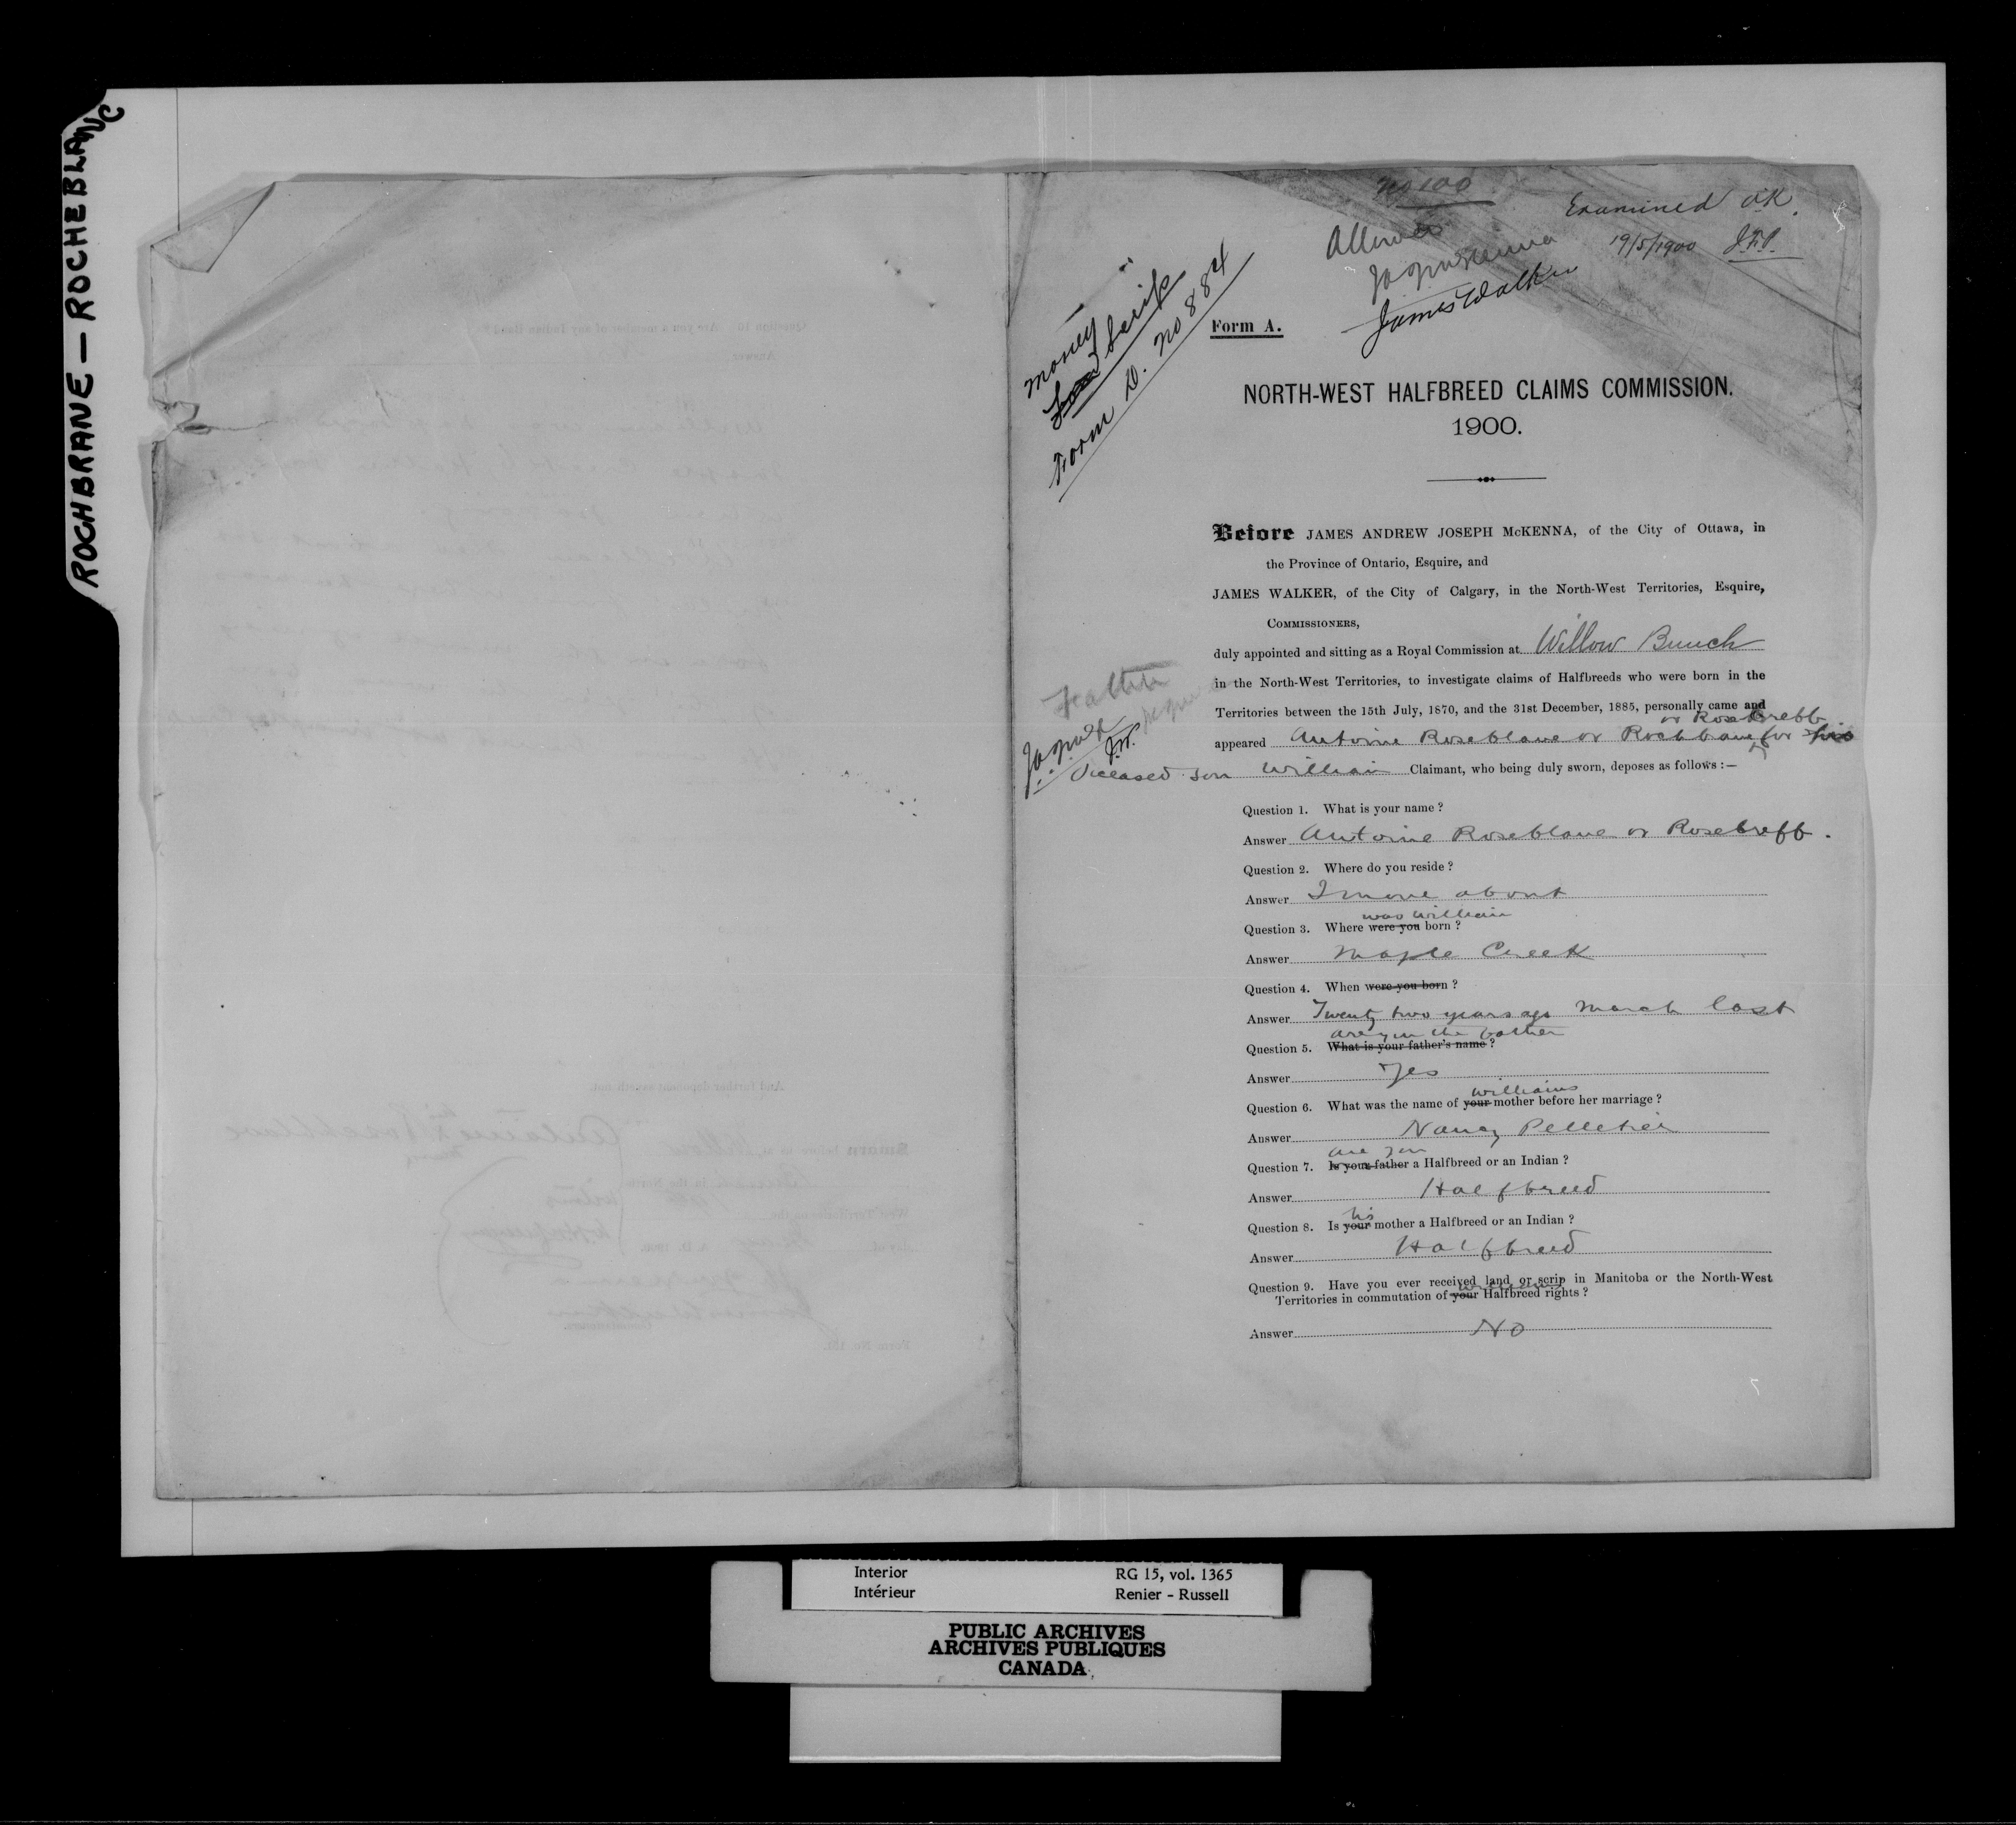 ROCHBRANE — ROCHEBLANC
No 100
Examined O.K.
19/5/1900 J.P.
Allowed
JAJ McKenna
James Walker
Money
Land Scrip
Form D. No 884
Form A.
NORTH-WEST HALFBREED CLAIMS COMMISSION.
1900.
Before JAMES ANDREW JOSEPH McKENNA, of the City of Ottawa, in
the Province of Ontario, Esquire, and
JAMES WALKER, of the City of Calgary, in the North-West Territories, Esquire,
COMMISSIONERS,
duly appointed and sitting as a Royal Commission at Willow Bunch
in the North-West Territories, to investigate claims of Halfbreeds who were born in the
Territories between the 15th July, 1870, and the 31st December, 1885, personally came and
or Rosebreff
appeared Antoine Roseblane or Rochbane for his
Deceased son William Claimant, who being duly sworn, deposes as follows :—
Question 1. What is your name ?
Answer Antoine Roseblane or Rosebreff.
Question 2. Where do you reside ?
Answer I move about
was William
Question 3. Where were you born ?
Answer Maple Creek
Question 4. When were you born ?
Answer Twenty two years ago March last
are you the father
Question 5. What is your father's name ?
Answer Yes
Williams
Question 6. What was the name of your mother before her marriage ?
Answer Nancy Pelletier
are you
Question 7. Is your father a Halfbreed or an Indian ?
Answer Halfbreed
his
Question 8. Is your mother a Halfbreed or an Indian ?
Answer Halfbreed
Question 9. Have you ever received land or scrip in Manitoba or the North-West
Territories in commutation of your Halfbreed rights ?
Answer No
Interior RG 15, vol. 1365
Intérieur Renier - Russell
PUBLIC ARCHIVES
ARCHIVES PUBLIQUES
CANADA